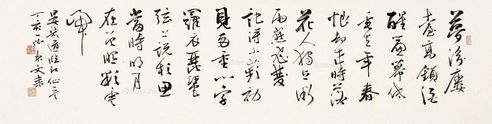 夢後樓
臺高鎖酒
醒簾幕低
垂去年春
恨却來時落
花人獨立微
雨燕雙飛
記得小蘋初
見兩重心字
羅衣琵琶
弦上說相思
當時明月
在曾照彩雲
歸
晏幾道臨江仙